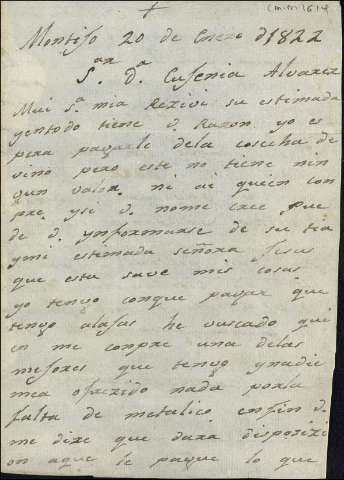 cmm1614
+
Montijo 20 de Enero d 1822
S.ra D.a Eusenia Alvarez
Mui S.a mia Rezivi su estimada
yentodo tiene v. Razon yo es
pera pagarle dela cosecha de
vino pero este no tiene nin
gun valor ni ai quien con
pre yse v. nome cree pue
de v. ynformarse de su tia
ymi estimada señora Jesus
que esta save mis cosas
yo tengo conque pagar que
tengo alajas he vuscado qui
en me conpre una delas
mejores que tengo ynadie
mea ofrezido nada porla
falta de metalico enfin v.
me dixe que dara disposizi
on aque le pague lo que